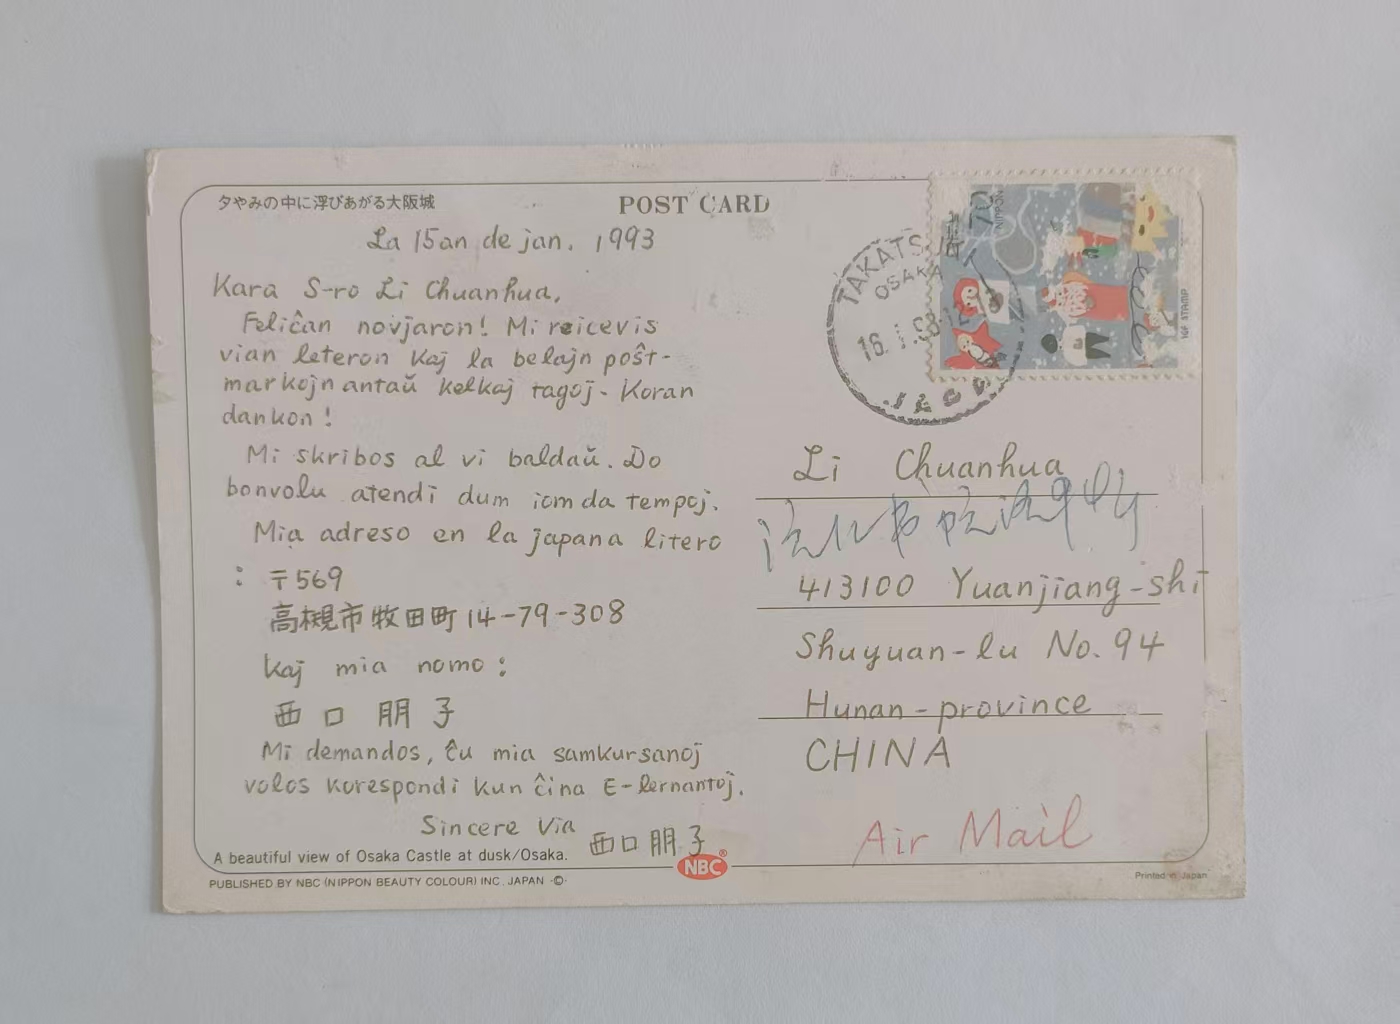 夕やみの中に浮びあがる大阪城
POST CARD
La 15an de jan. 1993
Kara S-ro Li Chuanhua,
Feliĉan novjaron! Mi reicevis
vian leteron kaj la belajn poŝt-
markojn antaŭ kelkaj tagoj. Koran
dankon!
Mi skribos al vi baldaŭ. Do
bonvolu atendi dum iom da tempoj.
Mia adreso en la japana litero
: 〒569
高槻市牧田町14-79-308
kaj mia nomo:
西口朋子
Mi demandos, ĉu mia samkursanoj
volos korespondi kun ĉina E-lernantoj.
Sincere Via
西口朋子
A beautiful view of Osaka Castle at dusk/Osaka.
NBC®
PUBLISHED BY NBC (NIPPON BEAUTY COLOUR) INC. JAPAN ·©·
NIPPON
IGF STAMP
OSAKA
JAPAN
Li Chuanhua
413100 Yuanjiang-shi
Shuyuan-lu No. 94
Hunan-province
CHINA
Air Mail
Printed in Japan